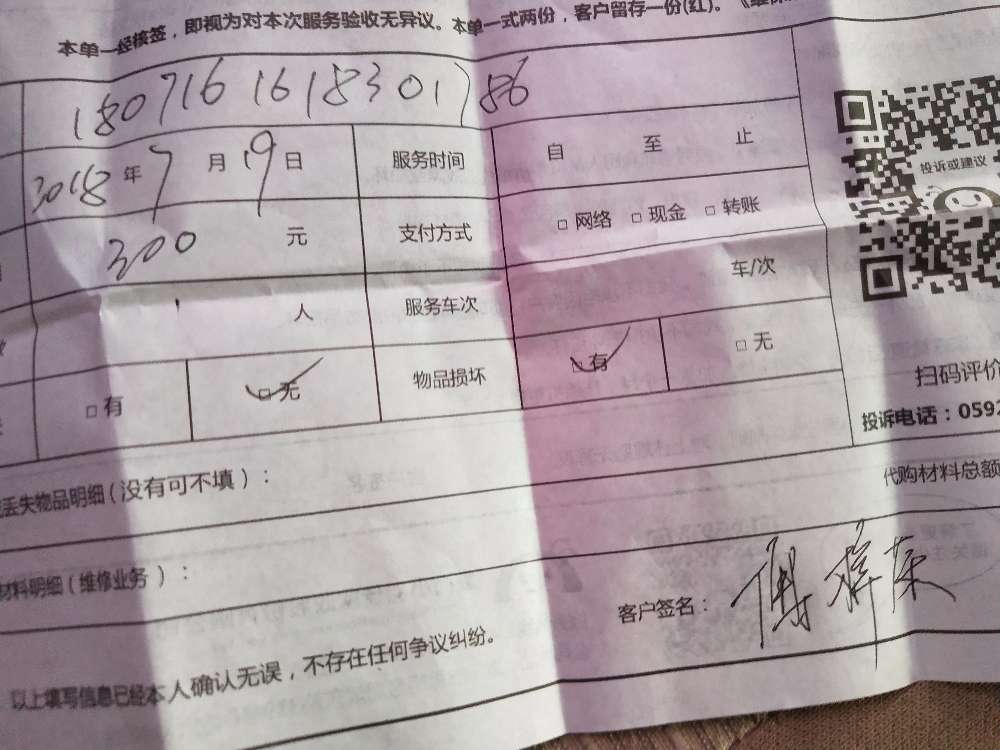 本单一经核签，即视为对本次服务验收无异议。本单一式两份，客户留存一份(红)。
1807161618301786
2018年7月19日 服务时间 自 至 止
投诉或建议
300 元 支付方式 □ 网络 □ 现金 □ 转账
人 服务车次 车/次
□ 有 □ 无 物品损坏 □ 有 □ 无
扫码评价
投诉电话：059
丢失物品明细(没有可不填)：
代购材料总额
材料明细(维修业务)：
客户签名：
以上填写信息已经本人确认无误，不存在任何争议纠纷。